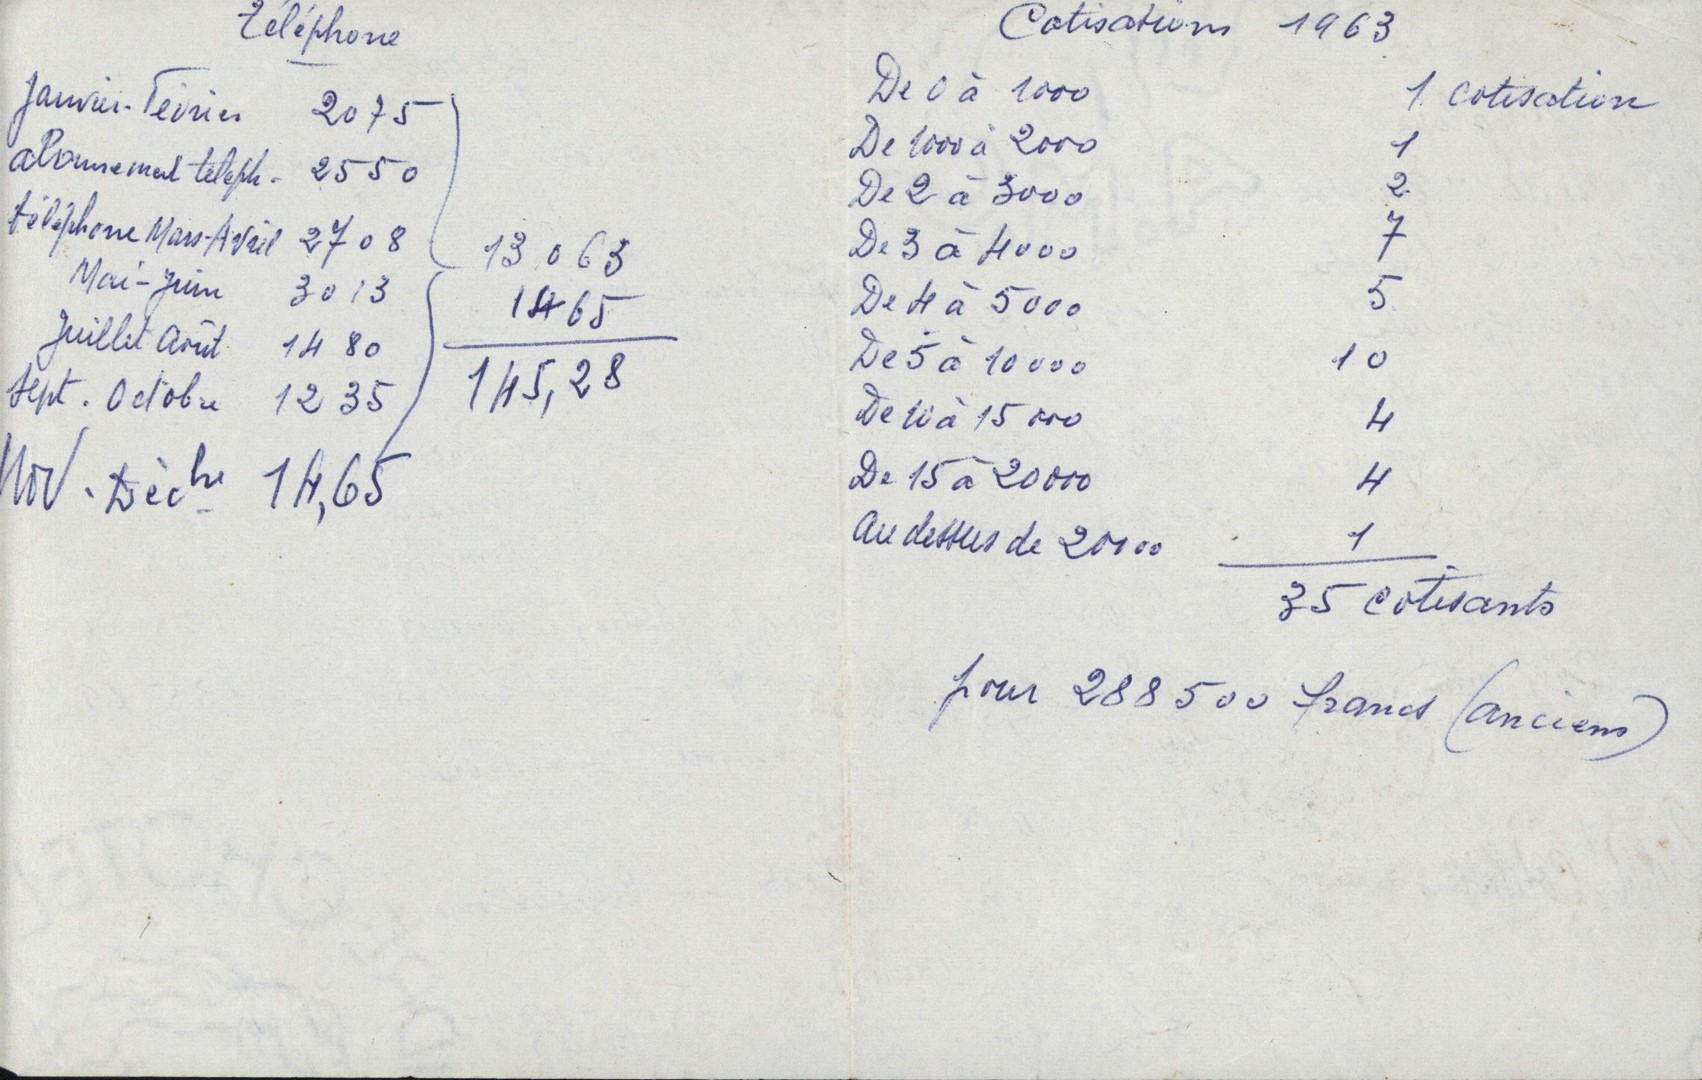 Téléphone
Janvier-Février 2075
abonnement téleph. 2550
téléphone Mars-Avril 2708
Mai-Juin 3013
Juillet Août 1480
Sept. Octobre 1235
Nov. Décbre 14,65
13063
1465
145,28
Cotisations 1963
De 0 à 1000 1 cotisation
De 1000 à 2000 1
De 2 à 3000 2
De 3 à 4000 7
De 4 à 5000 5
De 5 à 10000 10
De 10 à 15000 4
De 15 à 20000 4
Au dessus de 20000 1
35 cotisants
pour 288500 francs (anciens)